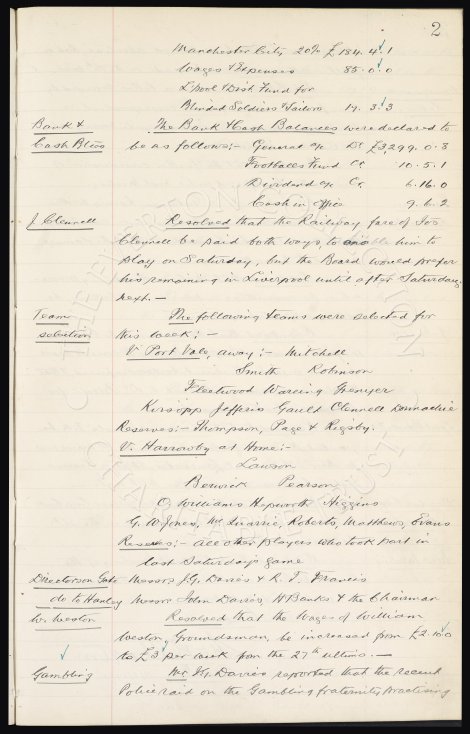 2
Manchester City 20% £184. 4. 1
Wages & Expenses 85. 0. 0
L'pool & Dist Fund for
Blinded Soldiers & Sailors 19. 3. 3
Bank & The Bank & Cash Balances were declared to
Cash Blces be as follows:- General a/c Dr £3299. 0. 8
Footballs Fund Cr 10. 5. 1
Dividend a/c Cr. 6. 16. 0
Cash in office 9. 6. 2
J Clennell Resolved that the Railway fare of Jos
Clennell be paid both ways to enable him to
play on Saturday, but the Board would prefer
his remaining in Liverpool until after Saturday
next.-
Team The following teams were selected for
selection this week:-
V Port Vale, away:- Mitchell
Smith Robinson
Fleetwood Wareing Grenyer
Kirsopp Jefferis Gault Clennell Donnachie
Reserves:- Thompson, Page & Rigsby.
V. Harrowby at Home:-
Lawson
Berwick Pearson
O. Williams Hepworth Higgins
G. W. Jones, McQuarrie, Roberts, Matthews, Evans
Reserves:- all other players who took part in
last Saturday's game
Directors on Gate Messrs J.G. Davies & R. T. Francis
do to Hanley Messrs John Davies, H Banks & the Chairman
W. Weston Resolved that the Wages of William
Weston, Groundsman, be increased from £2.10.0
to £3 per week from the 27th ultimo.-
Gambling Mr J.G. Davies reported that the recent
Police raid on the Gambling fraternity practising
THE EVERTON
CHARITABLE TRUST